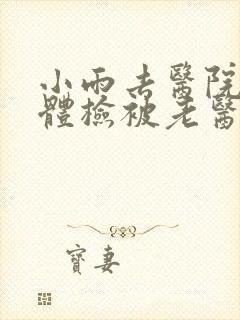 小雨去醫院
體檢被老醫
寶妻